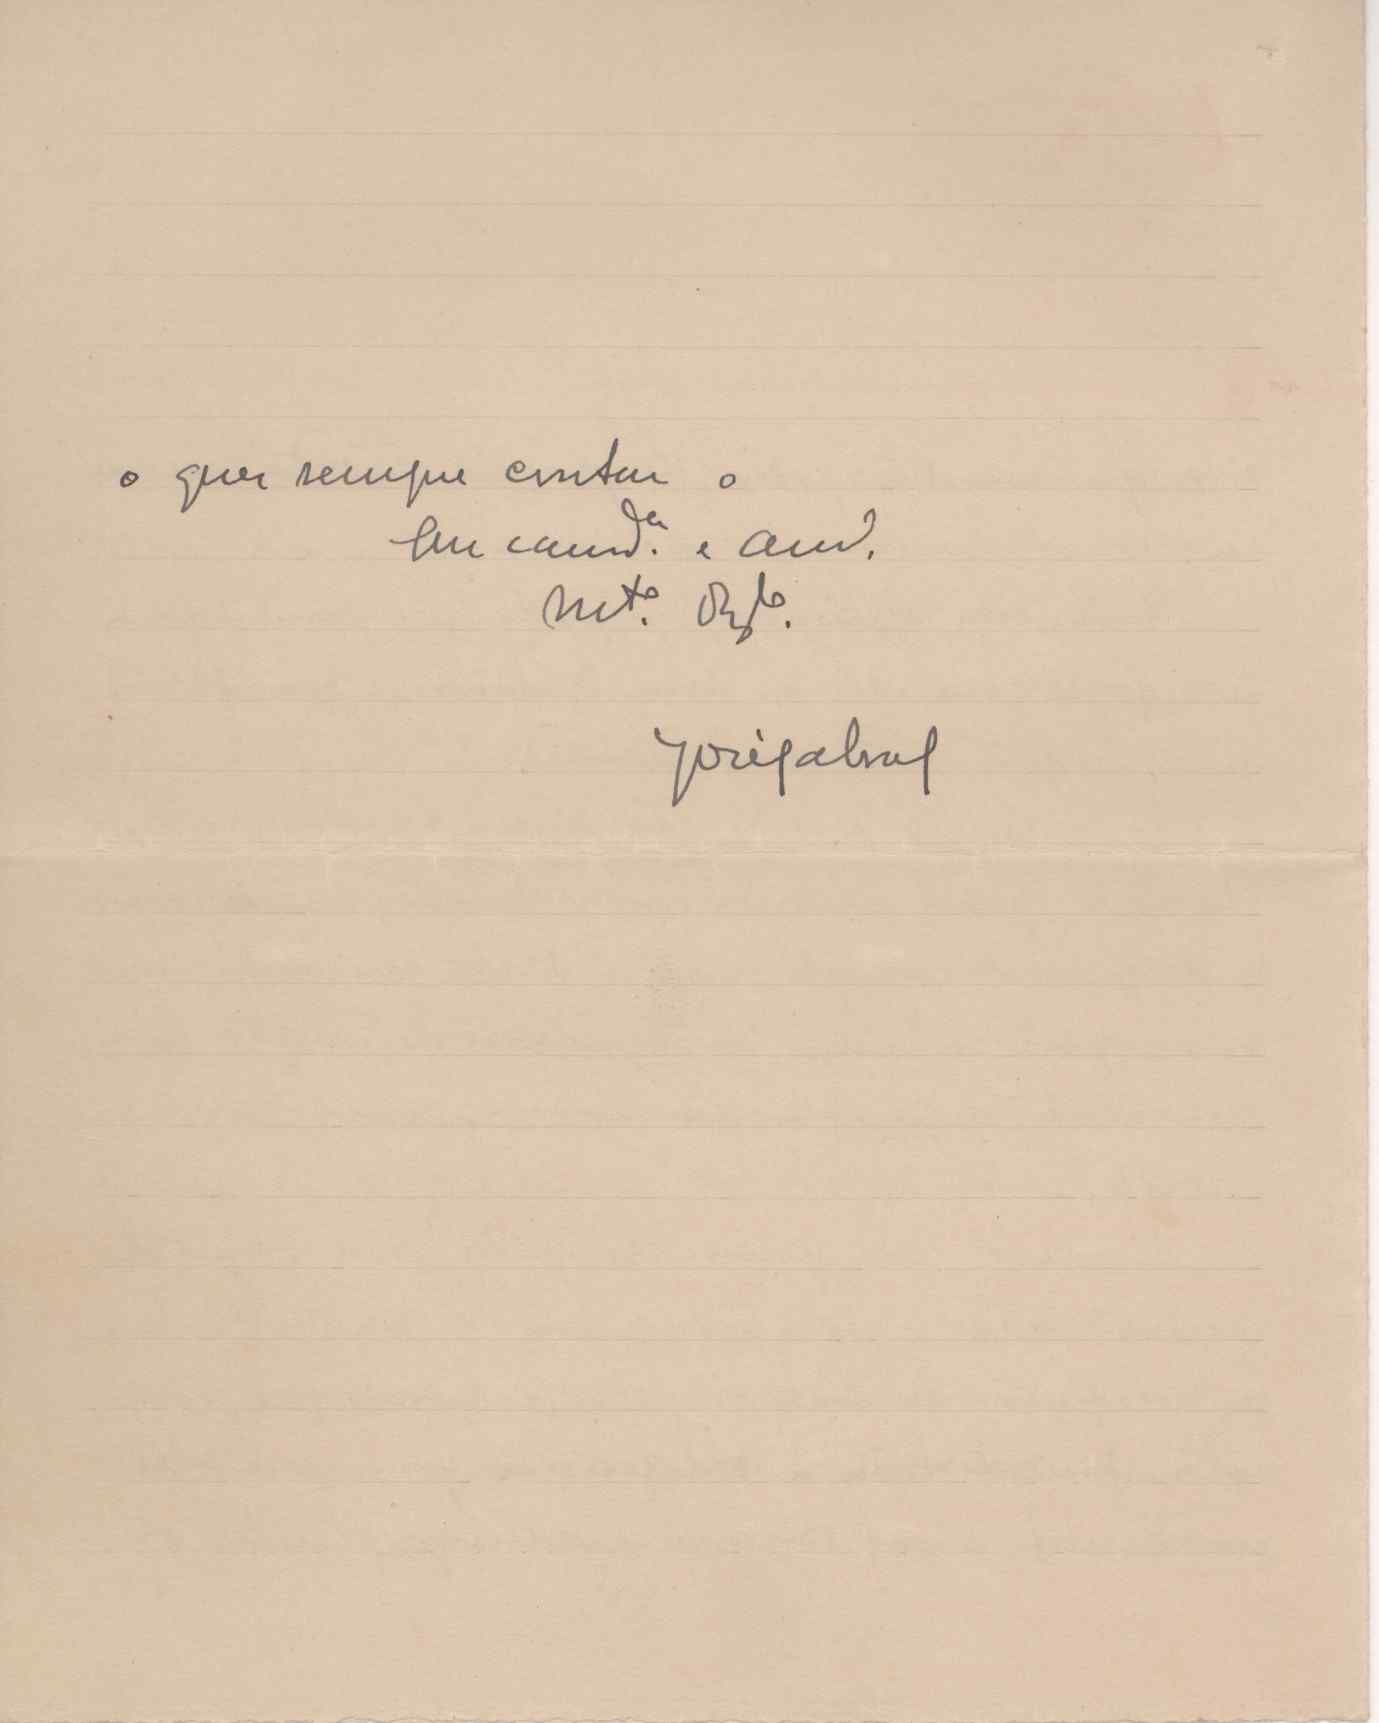 o quer sempre contar o
seu camd.ª e am.º
Mt.º Obg.do.
José Cabral